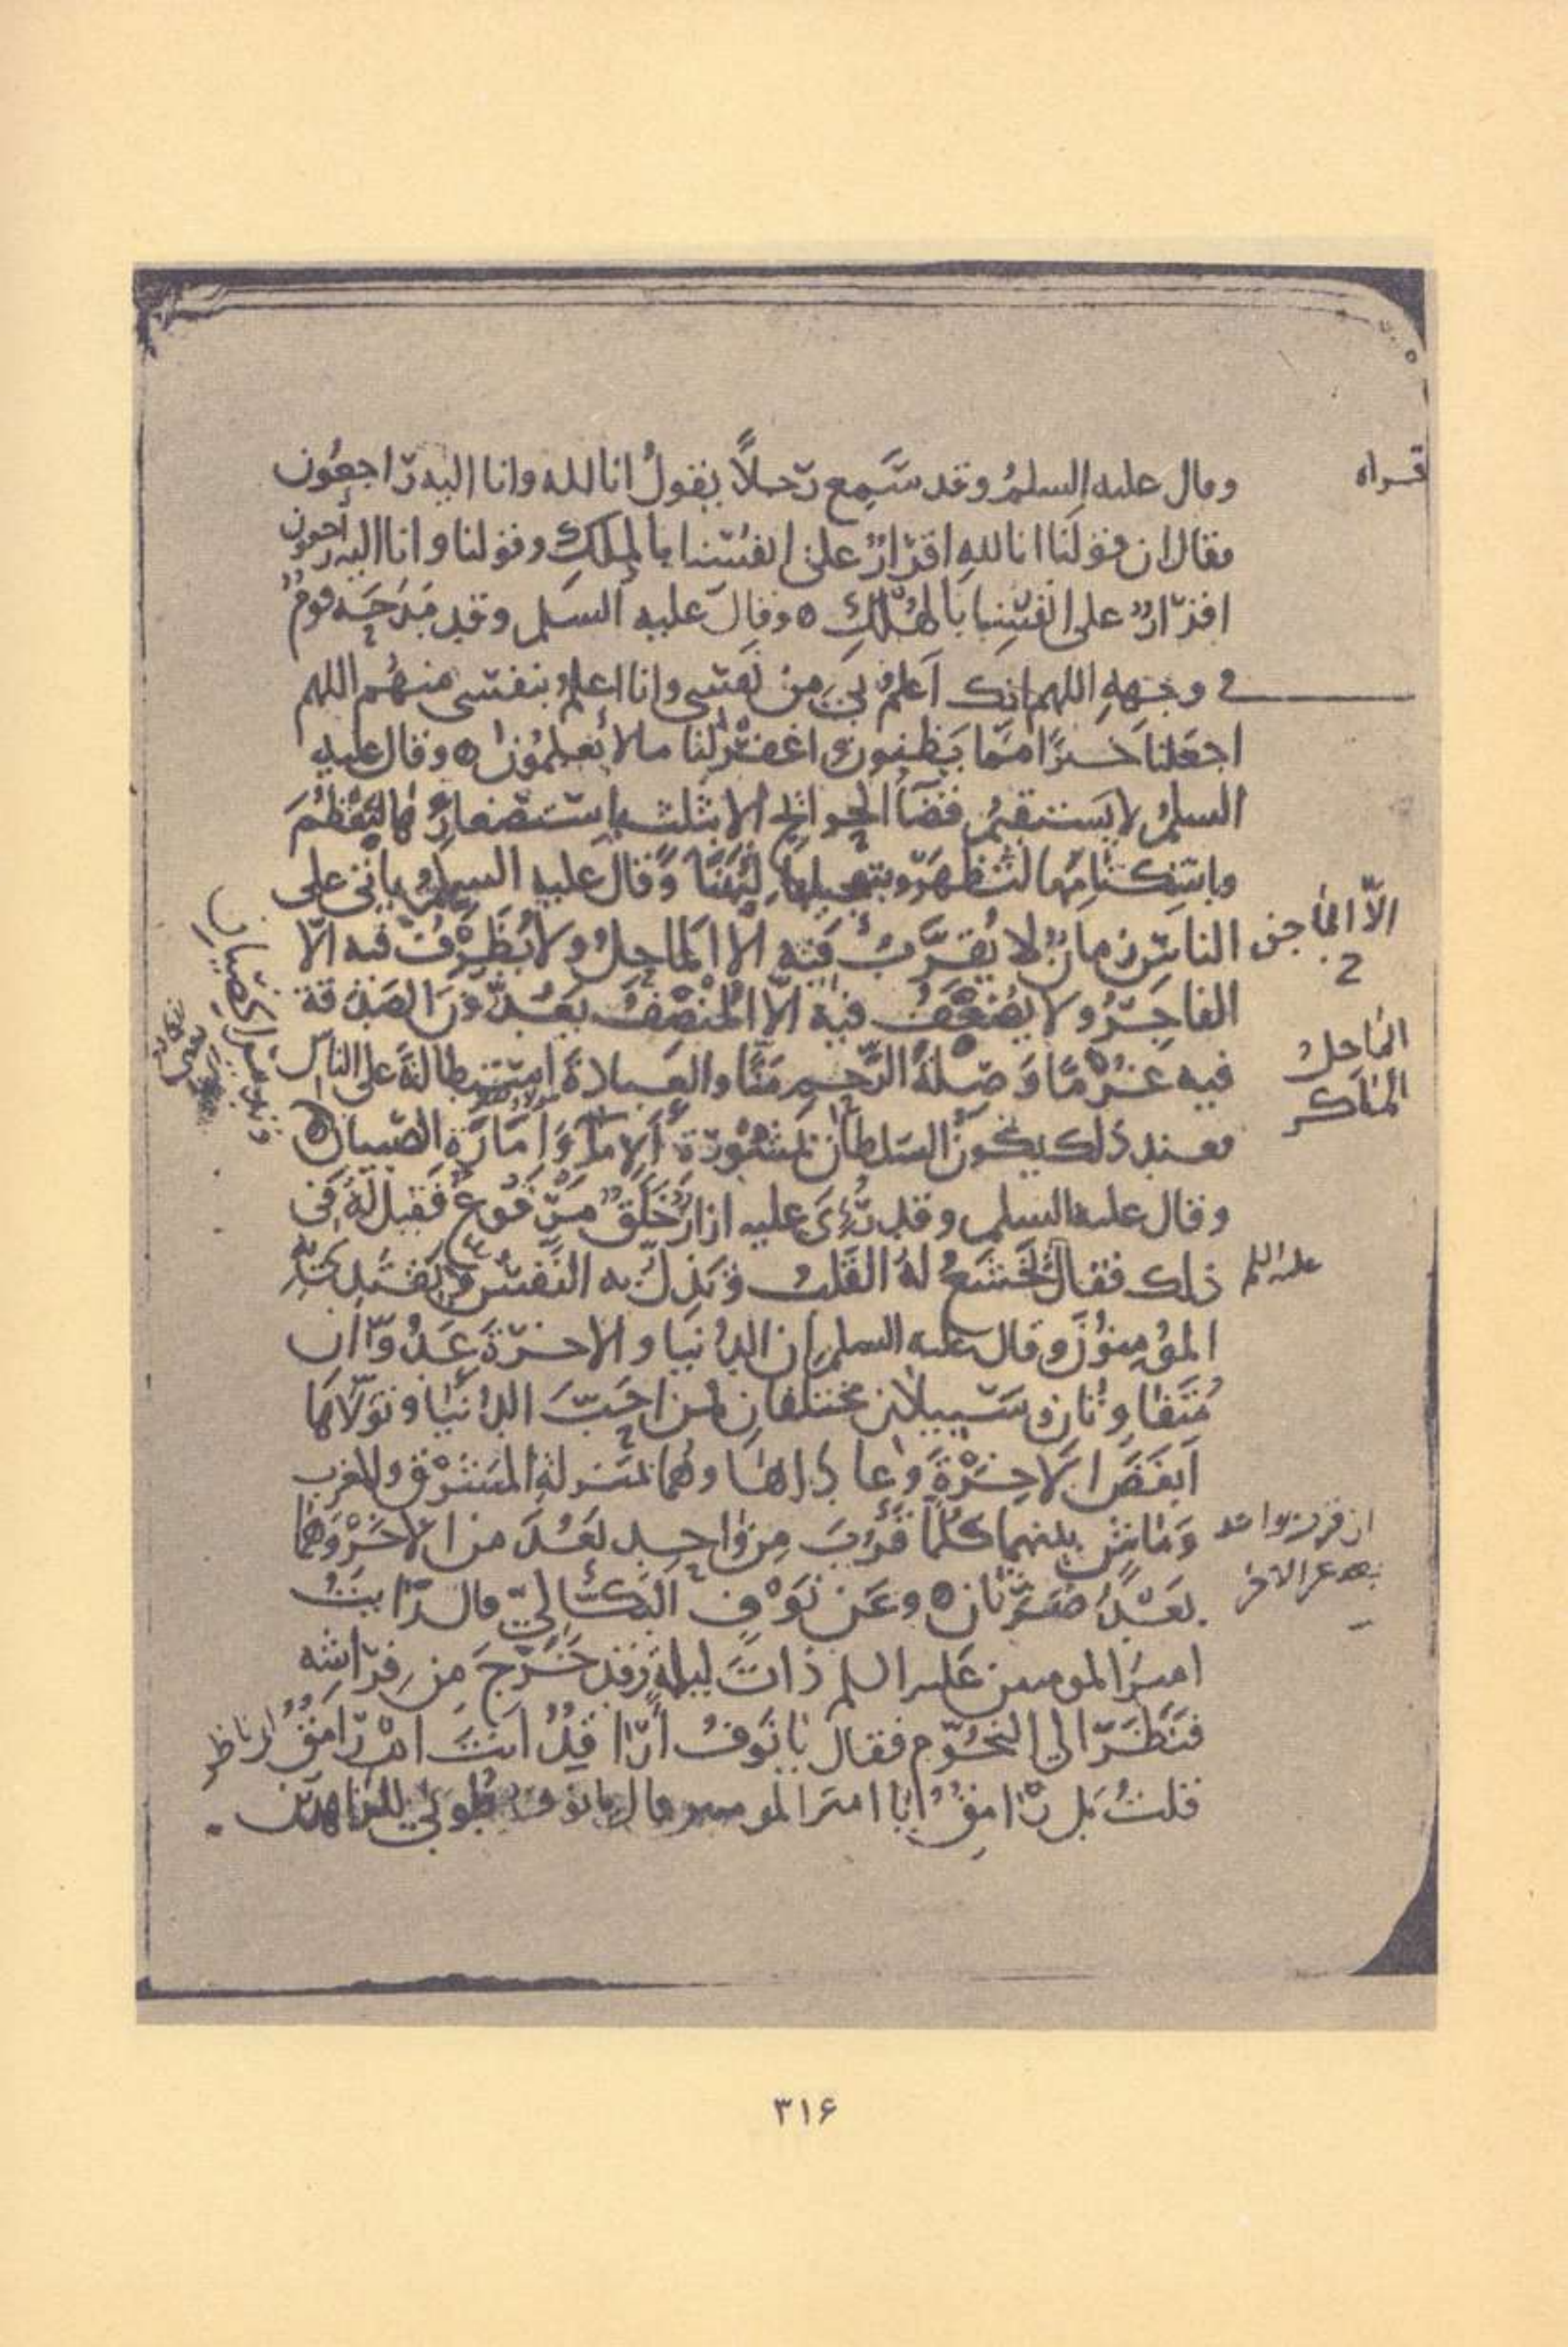 وقال عليه السلم وقد سَمِع رَجلاً يقولُ انا لله وانا اليه راجعُون
فقال ان قولنا انا للهِ اقرارٌ على انفسنا بالملكِ وقولنا وانا اليه راجعون
اقرارٌ على انفسِنا بالهُلْكِ ٥ وقال عليه السلم وقد مَدَحَه قومٌ
في وجهِهِ اللهم انك اَعلمُ بي من نفسى وانا اعلم بنفسى منهُم اللهم
اجعَلنا خيرًا ممّا يَظنون واغفرْ لنا ما لا يَعلمُون ٥ وقال عليه
السلم لا يَستقيمُ قضآءُ الحوائج الا بثلث باستصغارها لتَعْظُمَ
وباستكتامِها لتظهَرَ وبتعجيلها لِتَهْنَأَ وقال عليه السلم ياتى على
الناسِ زمانٌ لا يُقرَّبُ فيه الّا الماحِلُ ولا يُظرّفُ فيه الّا
الفاجرُ ولا يُضعّفُ فيه الّا المُنْصِفُ يَعُدُّونَ الصَدَقة
فيه غُرْمًا وَصِلَةَ الرَّحِمِ مَنًّا والعبادةَ استطالةً على الناس
فعند ذلك يكونُ السلطان بمَشْوُرَةِ الامآءِ وَاِمَارَةِ الصّبيان
وقال عليه السلم وقد رُئِىَ عليه ازارٌ خَلَقٌ مَرْقُوعٌ فقيل لَهُ فى
ذلك فقال يَخشَعُ لهُ القَلبُ وتَذِلُّ به النَّفسُ ويَقتَدِى بِهِ
المؤمِنُونَ وقال عليه السلم ان الدُنيا والاخرَةَ عَدُوّانِ
مُتَفاوِتانِ وسَبيلانِ مختلفانِ فمن احَبَّ الدُنيَا وتوَلّاهَا
اَبغَضَ الاخِرَةَ وعاداها وهُما بمنزلةِ المشرْقِ والمغرب
وَمَاشٍ بينهما كُلّمَا قَرُبَ مِن واحِدٍ بَعُدَ من الاخَرِ وَهُمَا
بَعْدُ ضَرَّتَانِ ٥ وعَن نَوْفٍ البَكَّالِيّ قال رَايتُ
اميرَ المومنين عليه السلم ذاتَ ليلةٍ وقد خَرَجَ مِن فِراشِه
فنَظَرَ الى النجُوم فقال يا نَوفُ اَرَاقِدٌ انتَ امْ رَامِقٌ
قلتُ بَل رَامِقٌ يا امير المومنين قال يا نوف طُوبى للزاهدين
قراه
الّا الماجن
الماحِلُ
الماكر
عليه السلم
ان قرب من واحد
بعد عن الاخر
وتدبير الخصيان
اى ناظر
٣١۶